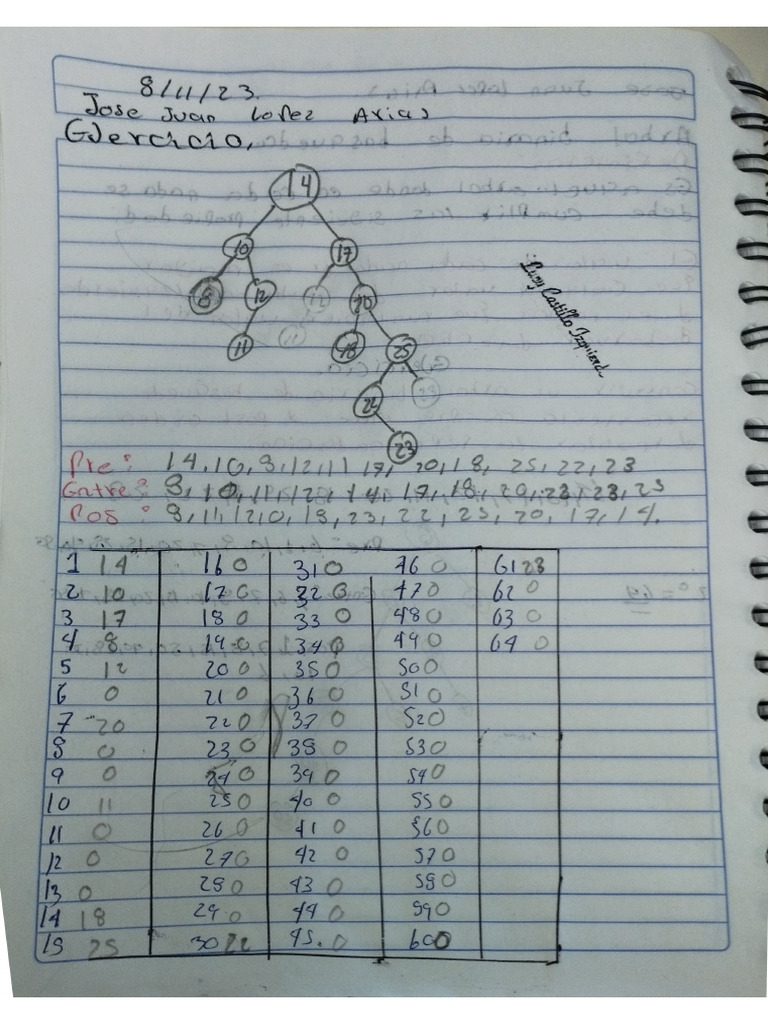 8/11/23.
Jose Juan Lopez Arias
Ejercicio.
14
10 17
8 12 12 20
11 18 25
22
23
Lucy Castillo Izquierd
Pre: 14, 10, 8, 12, 11 17, 20, 18, 25, 22, 23
Entre: 8, 10, 11, 12, 14, 17, 18, 20, 22, 23, 25
Pos: 8, 11, 12, 10, 18, 23, 22, 25, 20, 17, 14.
1 14 16 0 31 0 46 0 61 23
2 10 17 0 32 0 47 0 62 0
3 17 18 0 33 0 48 0 63 0
4 8 19 0 34 0 49 0 64 0
5 12 20 0 35 0 50 0
6 0 21 0 36 0 51 0
7 20 22 0 37 0 52 0
8 0 23 0 38 0 53 0
9 0 24 0 39 0 54 0
10 11 25 0 40 0 55 0
11 0 26 0 41 0 56 0
12 0 27 0 42 0 57 0
13 0 28 0 43 0 58 0
14 18 29 0 44 0 59 0
15 25 30 22 45. 0 60 0